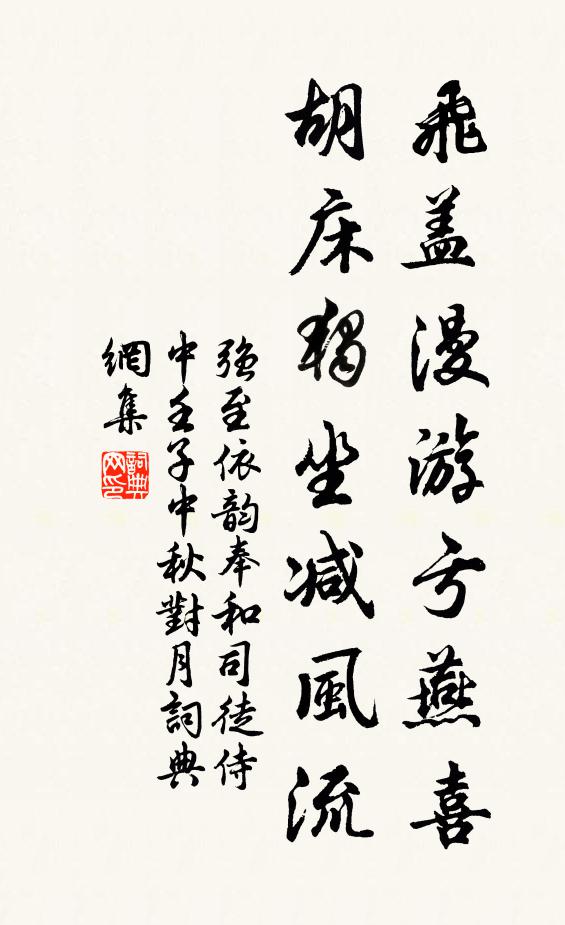 飛盖漫游亏燕喜
胡床独坐减風流
强至依韵奉和司徒侍
中壬子中秋對月詞典
網集
詞典網印